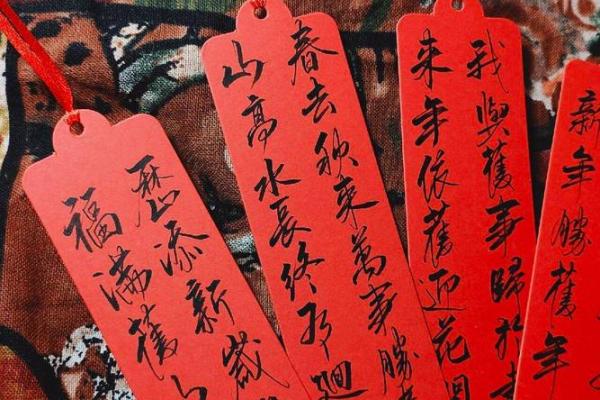 曆添新歲
福滿舊山
春去秋來萬事勝
山高水長終有迴
我與舊事歸於
來年依舊迎花
新年勝舊年